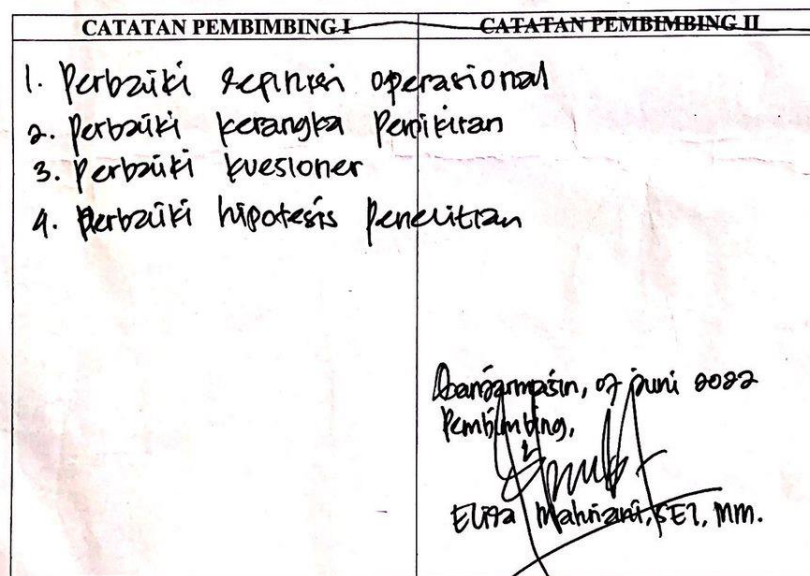 CATATAN PEMBIMBING I
CATATAN PEMBIMBING II
1. Perbaiki definisi operasional
2. Perbaiki kerangka Pemikiran
3. Perbaiki kuesioner
4. Perbaiki hipotesis Penelitian
Banjarmasin, 07 juni 2022
Pembimbing,
Elisa Mahriani, SEI, MM.